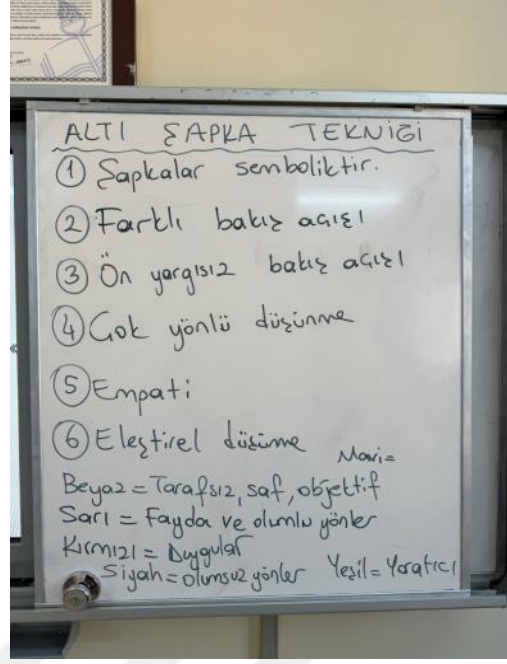 ALTI ŞAPKA TEKNİĞİ
① Şapkalar semboliktir.
② Farklı bakış açışı
③ Ön yargısız bakış açışı
④ Çok yönlü düşünme
⑤ Empati
⑥ Eleştirel düşüme
Mavi=
Beyaz = Tarafsız, saf, objektif
Sarı = Fayda ve olumlu yönler
Kırmızı = Duygular
Siyah = olumsuz yönler Yeşil = Yaratıcı